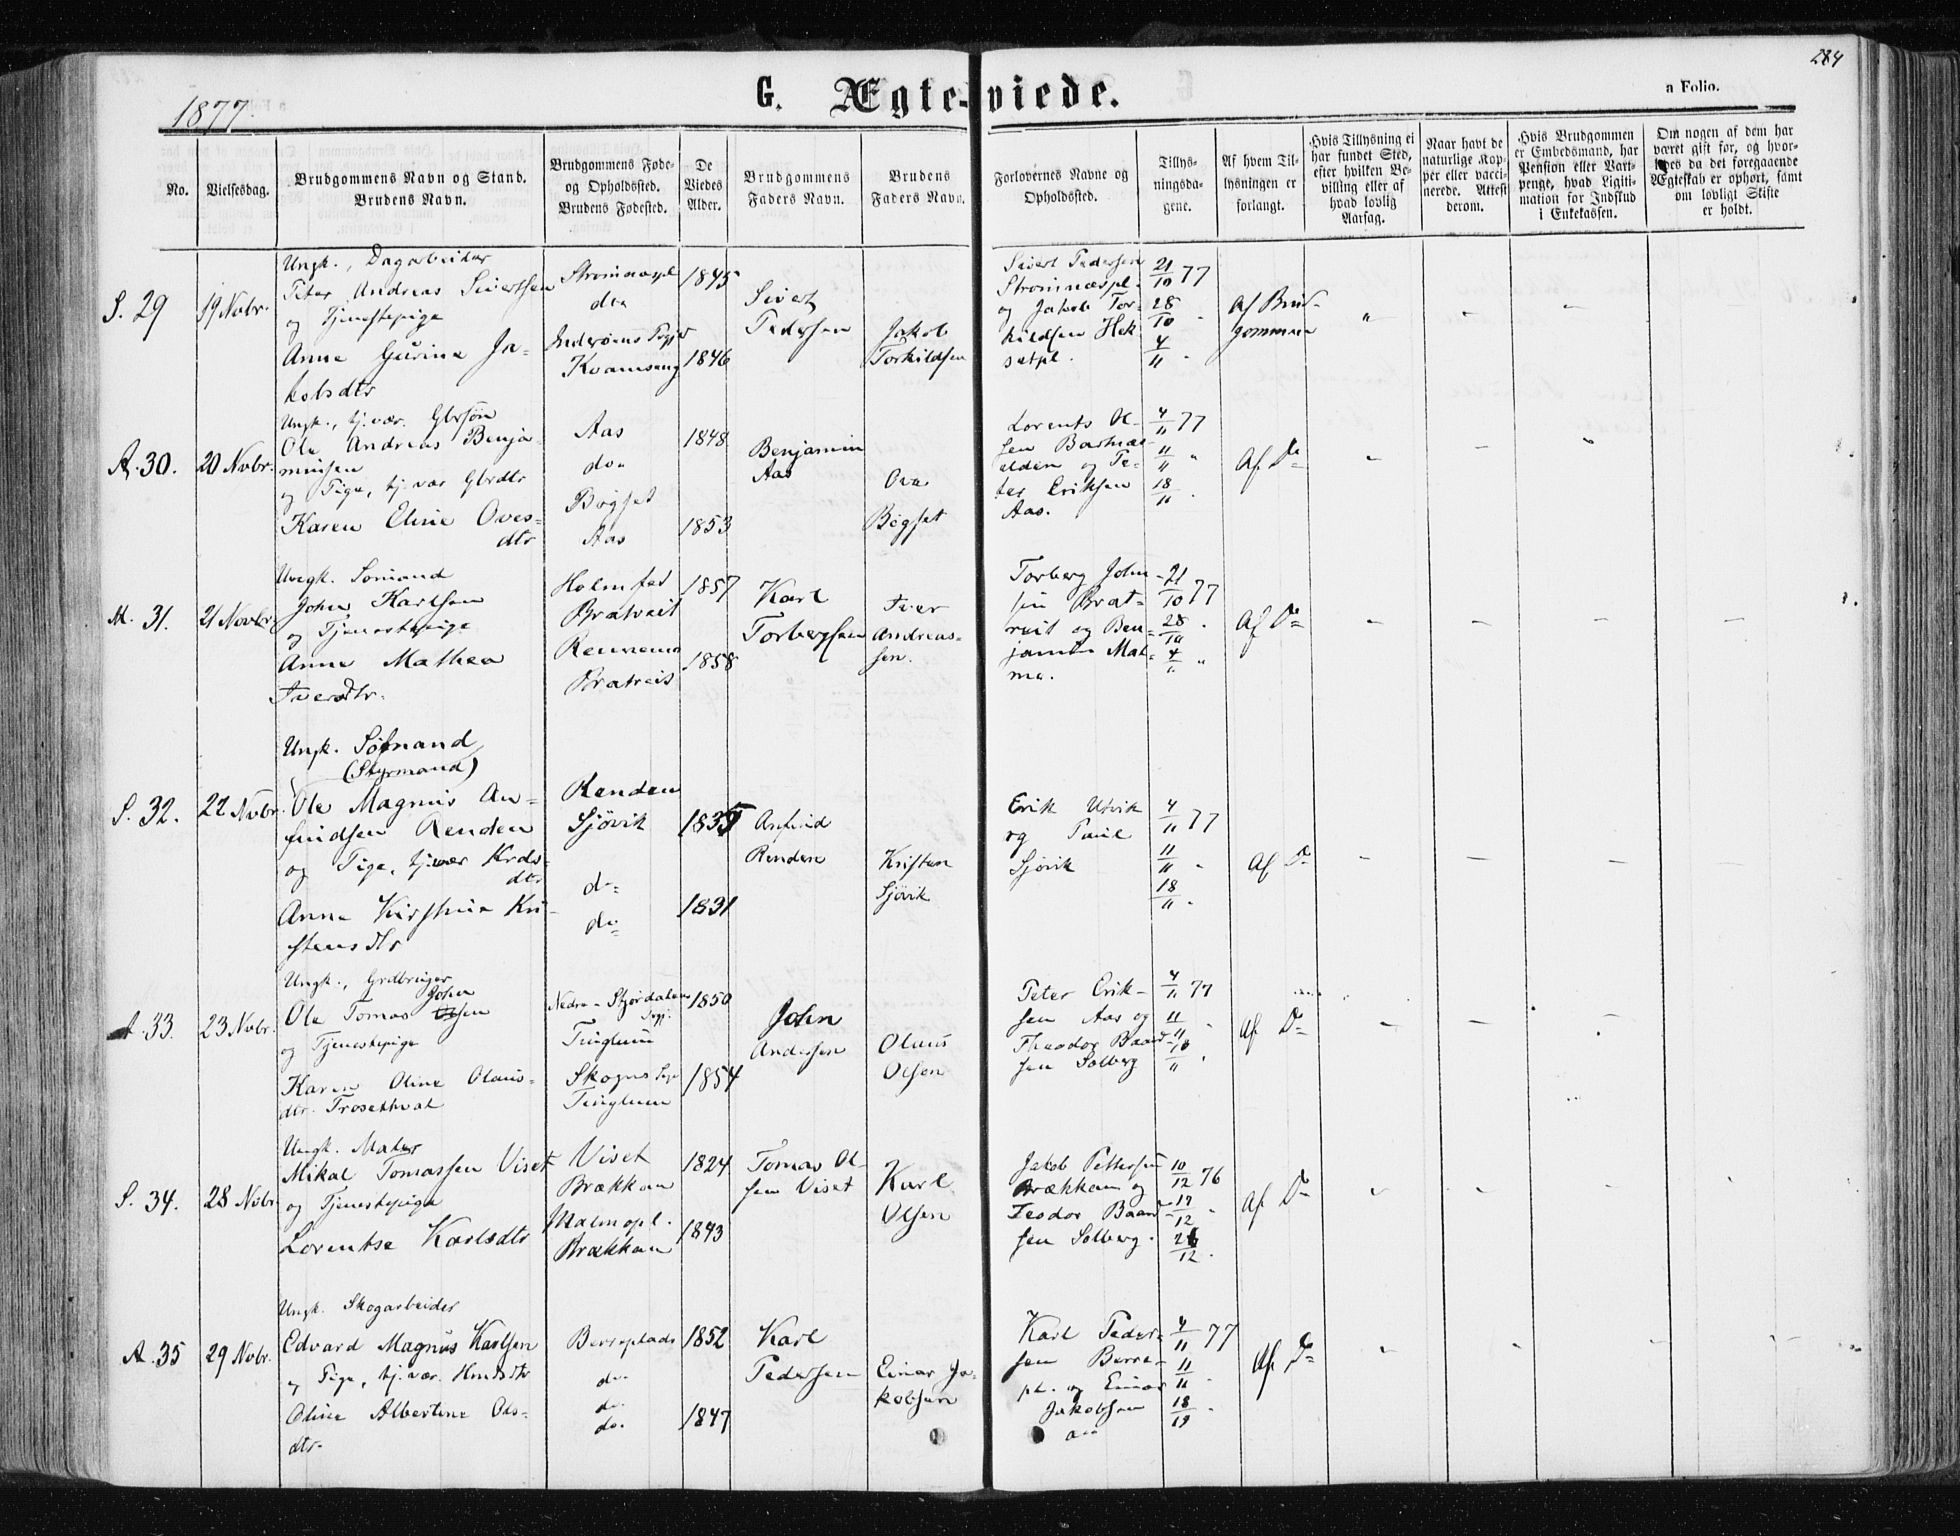 284
G. Ægte-viede.
a Folio.
1877.
No.
Vielsesdag.
Brudgommens Navn og Stand.
Brudens Navn.
Brudgommens Føde-
og Opholdssted.
Brudens Fødested.
De
Viedes
Alder.
Brudgommens
Faders Navn.
Brudens
Faders Navn.
Forlovernes Navne og
Opholdssted.
Tillys-
ningsda-
gene.
Af hvem Til-
lysningen er
forlangt.
Hvis Tillysning ei
har fundet Sted,
efter hvilken Be-
villing eller af
hvad lovlig
Aarsag.
Naar havt de
naturlige Kop-
per eller vacci-
nerede. Attest
derom.
Hvis Brudgommen
er Embedsmand, har
Pension eller Vart-
penge, hvad Ligiti-
mation for Indskud
i Enkekassen.
Om nogen af dem har
været gift før, og hvor-
ledes da det foregaaende
Ægteskab er ophørt, samt
om lovligt Skifte
er holdt.
S. 29
19 Novbr.
Ungk., Dagarbeider
Peter Andreas Sivertsen
og Tjenestepige
Anne Gurine Ja-
kobsdtr
Strømnæspl
do
Inderøens Pgjd
Kvamseng
1845
1846
Sivert
Pedersen
Jakob
Torkildsen
Sivert Pedersen
Strømnæspl.
og Jakob Tor-
kildsen Hek-
setpl.
21/10 77
28/10 "
4/11 "
Af Brud-
gommen
A. 30.
20 Novbr.
Ungk., hj. vær. Gbrsøn
Ole Andreas Benja-
minsen
og Pige, hj. vær Gbrdtr
Karen Eline Oves-
dtr
Aas
do
Bøgset
Aas
1848
1853
Benjamin
Aas
Ove
Bøgset
Lorents Ol-
sen Bartnes-
alden og Pe-
ter Eriksen
Aas.
4/11 77
11/11 "
18/11 "
Af Do
M. 31.
21 Novbr.
Ungk. Sømand
John Karlsen
og Tjenestepige
Anne Mathea
Iversdtr.
Holmset
Bratreit
Rennemo
Bratreit
1857
1858
Karl
Torbergsen
Iver
Andreas-
sen.
Torberg John-
sen Brat-
reit og Ben-
jamin Mal-
mo.
21/10 77
28/10 "
4/11 "
Af Do
S. 32.
22 Novbr.
Ungk. Sømand
(Styrmand)
Ole Magnus An-
findsen Renden
og Pige, hj. vær Krds-
dtr
Anne Kirstine Kri-
stensdtr
Renden
Sjøvik
do
do
1835
1831
Anfind
Renden
Kristen
Sjøvik
Erik Utvik
og Paul
Sjøvik
4/11 77
11/11 "
18/11 "
Af Do
A. 33.
23 Novbr.
Ungk., Grdbruger
John
Ole Tomas Olsen
og Tjenestepige
Karen Oline Olaus-
dtr. Trøsethval
Nedre-Stjørdalens
Pgj.
Tinglum
Skogns Pgj
Tinglum
1850
1854
John
Andersen
Olaus
Olsen
Peter Erik-
sen Aas og
Theodor Baard-
sen Solberg
4/11 77
11/11 "
18/11 "
Af Do
S. 34.
28 Novbr.
Ungk. Maler
Mikal Tomassen Viset
og Tjenestepige
Lorentse Karlsdtr
Viset
Brækkan
Malmopl.
Brækkan
1824
1843
Tomas Ol-
sen Viset
Karl
Olsen
Jakob Pettersen
Brækkan og
Teodor Baard-
sen Solberg.
10/12 76
17/12 "
26/12 "
Af Do
A. 35
29 Novbr.
Ungk. Skogarbeider
Edvard Magnus Karlsen
og Pige, hj. vær. Hmdsdtr
Oline Albertine Ols-
dtr
Berreplads
do
do
do.
1852
1847
Karl
Pedersen
Einar Ja-
kobsen
Karl Peder-
sen Berre-
pl. og Einar
Jakobsen
4/11 77
11/11 "
18/11 "
Af Do